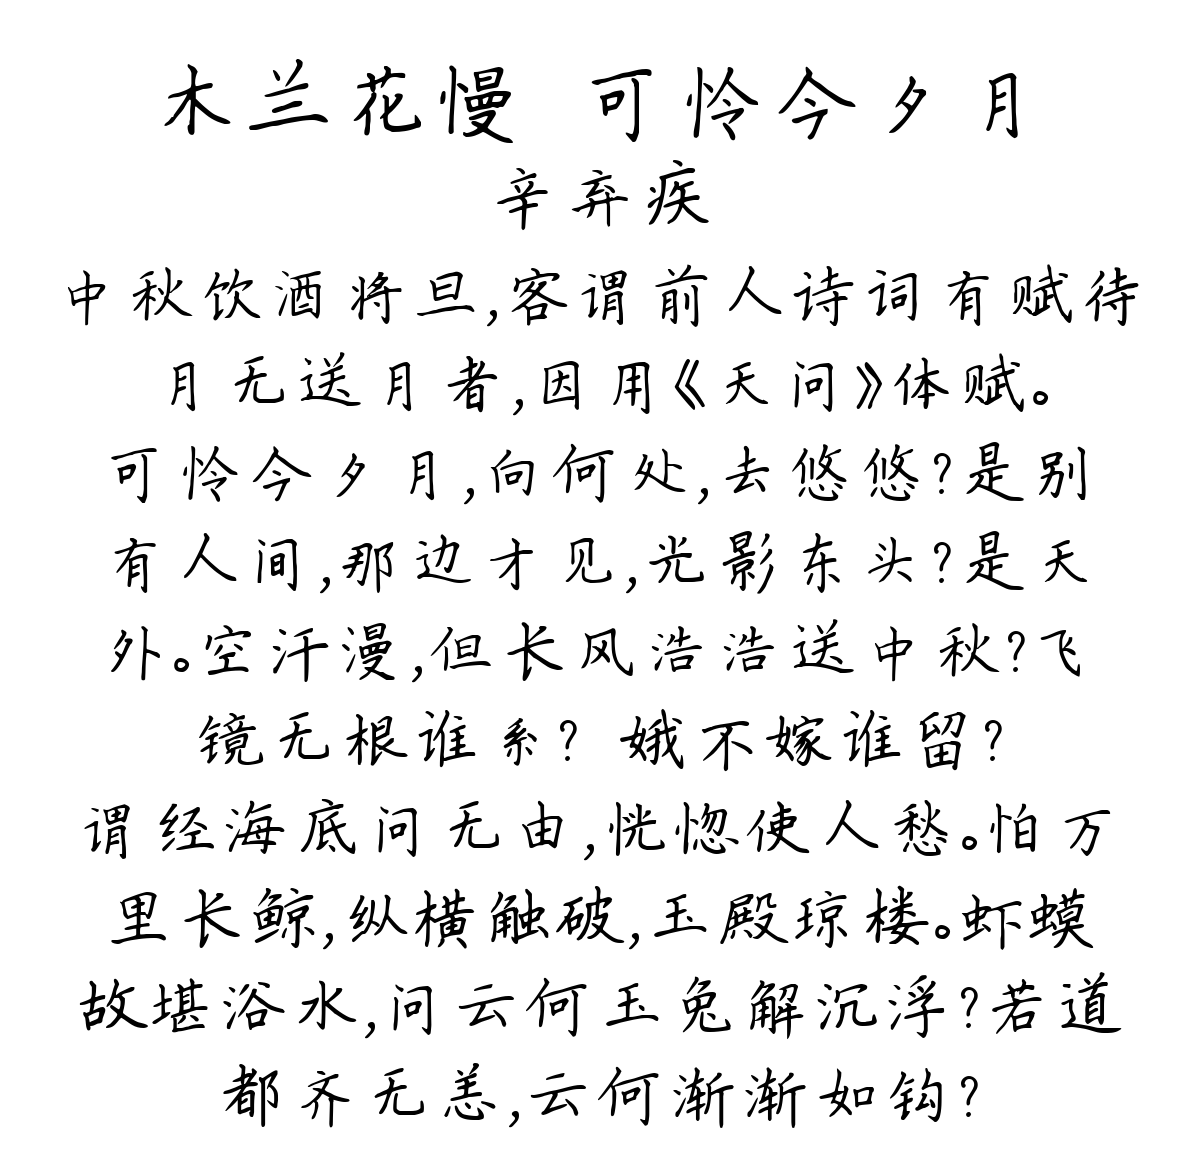 木兰花慢 可怜今夕月
辛弃疾
中秋饮酒将旦,客谓前人诗词有赋待
月无送月者,因用《天问》体赋。
可怜今夕月,向何处,去悠悠?是别
有人间,那边才见,光影东头?是天
外。空汗漫,但长风浩浩送中秋?飞
镜无根谁系? 娥不嫁谁留?
谓经海底问无由,恍惚使人愁。怕万
里长鲸,纵横触破,玉殿琼楼。虾蟆
故堪浴水,问云何玉兔解沉浮?若道
都齐无恙,云何渐渐如钩?